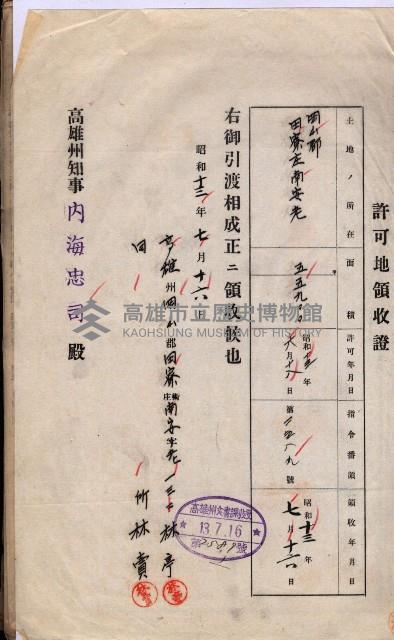 許可地領收證
土地ノ所在
面積
許可年月日
指令番號
領收年月日
岡山郡
田寮庄南安老
五五九〇〇
昭和十三年
六月十六日
第二五八九號
昭和十三年
七月十六日
右御引渡相成正ニ領收候也
昭和十三年七月十六日
高雄州岡山郡田寮庄南安字老一三
林亭
同
竹林賣
高雄州知事 內海忠司 殿
高雄州文書課收受
13.7.16
第2589號
高雄市立歷史博物館
KAOHSIUNG MUSEUM OF HISTORY